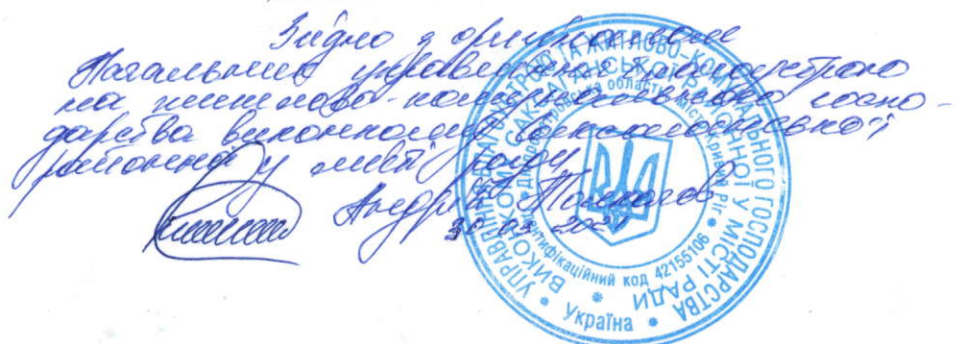 Згідно з оригіналом
Начальник управління благоустрою
та житлово-комунального госпо-
дарства виконкому Саксаганської
районної у місті ради
Андрій
30.03
УПРАВЛІННЯ БЛАГОУСТРОЮ ТА ЖИТЛОВО-КОМУНАЛЬНОГО ГОСПОДАРСТВА
ВИКОНКОМУ САКСАГАНСЬКОЇ РАЙОННОЇ У МІСТІ РАДИ
Дніпропетровська область місто Кривий Ріг
Ідентифікаційний код 42155106
Україна